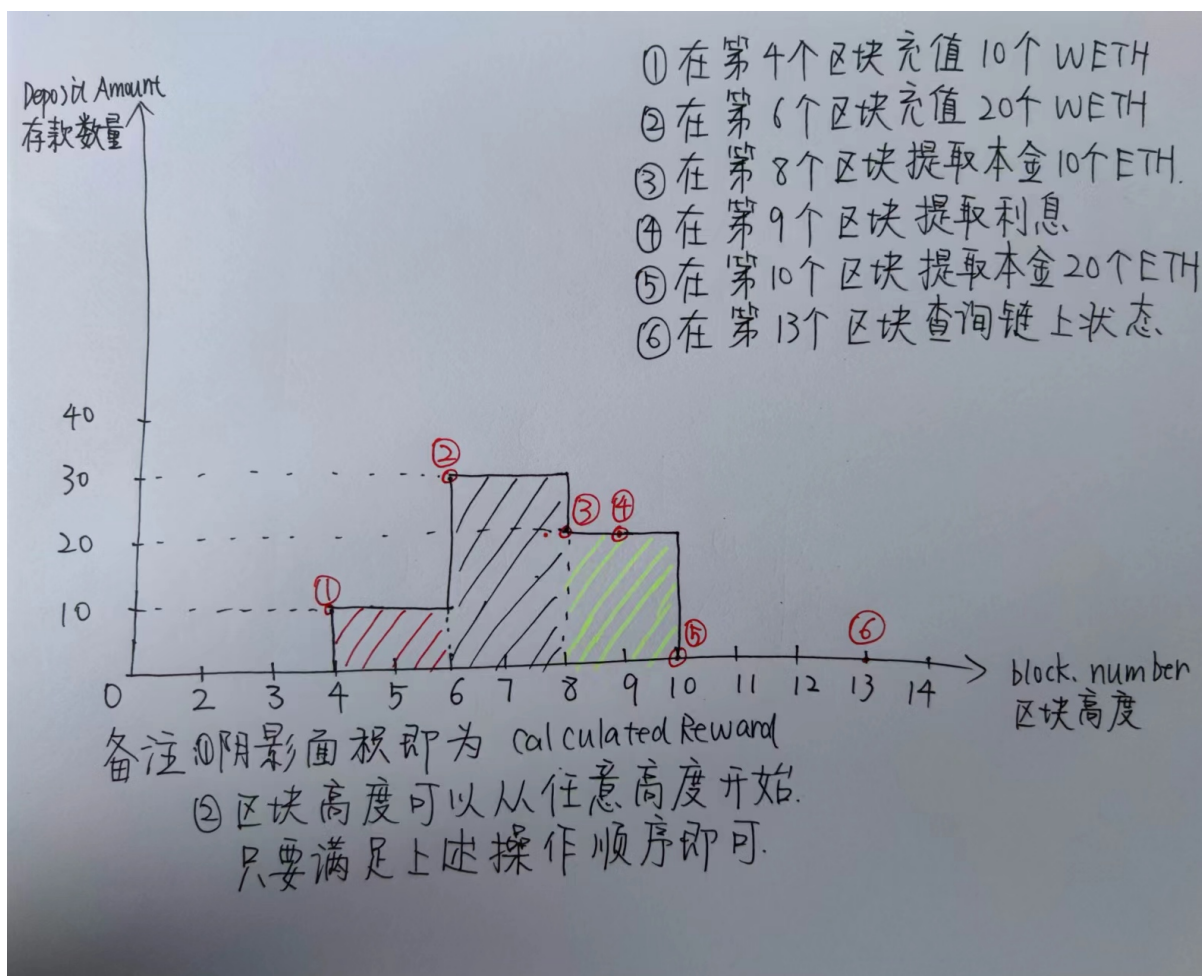 Deposit Amount
存款数量
①在第4个区块充值10个WETH
②在第6个区块充值20个WETH
③在第8个区块提取本金10个ETH.
④在第9个区块提取利息
⑤在第10个区块提取本金20个ETH
⑥在第13个区块查询链上状态
40
30
20
10
② ③ ④
① ⑤ ⑥
0 2 3 4 5 6 7 8 9 10 11 12 13 14
block.number
区块高度
备注:①阴影面积即为 calculated Reward
②区块高度可以从任意高度开始.
只要满足上述操作顺序即可.